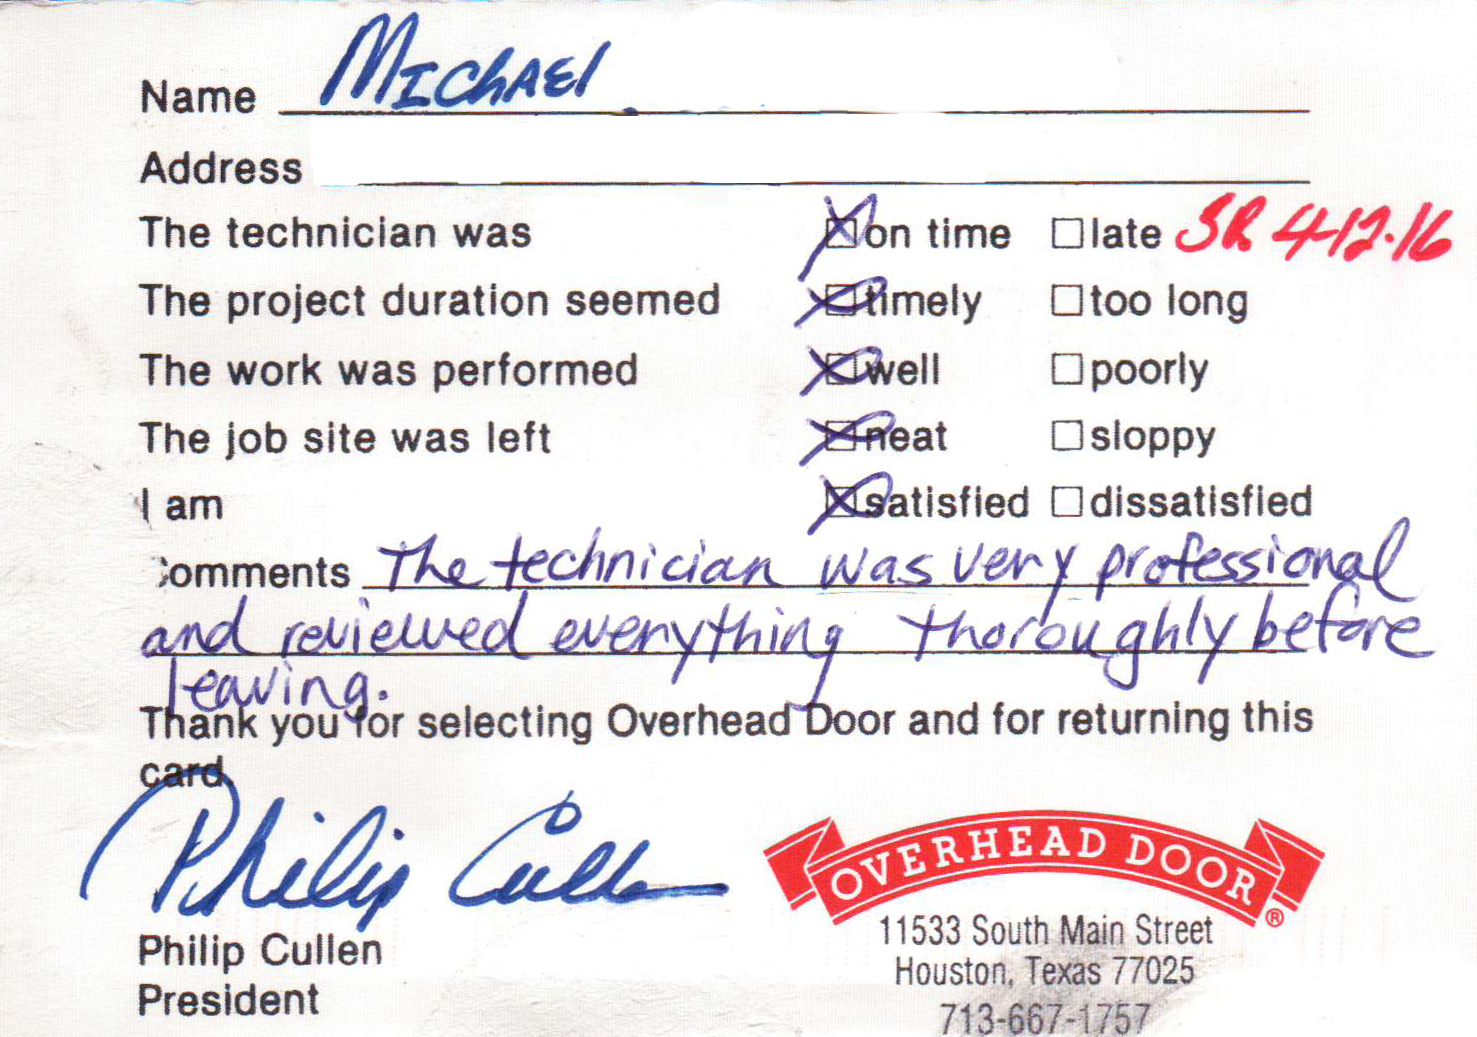 Name MIChAEl
Address
The technician was on time late SR 4-12-16
The project duration seemed timely too long
The work was performed well poorly
The job site was left neat sloppy
I am satisfied dissatisfied
omments The technician was very professional
and reviewed everything thoroughly before
leaving.
Thank you for selecting Overhead Door and for returning this
card.
Philip Cullen
Philip Cullen
President
OVERHEAD DOOR®
11533 South Main Street
Houston, Texas 77025
713-667-1757